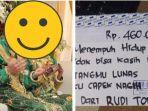 Rp. 460.
Menempuh Hidup
Tidak Bisa Kasih
TANGMU LUNAS
KU CAPEK NAGIH
DARI RUDI TO